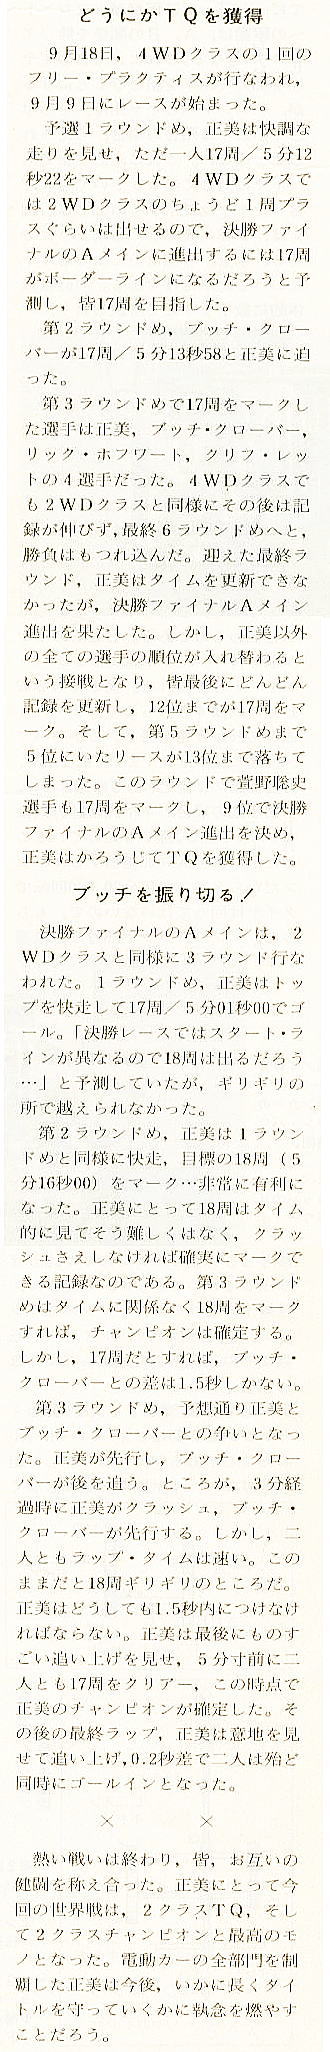 どうにかTQを獲得
９月18日，４WDクラスの１回の
フリー・プラクティスが行なわれ，
９月９日にレースが始まった。
予選１ラウンドめ，正美は快調な
走りを見せ，ただ一人17周／５分12
秒22をマークした。４WDクラスで
は２WDクラスのちょうど１周プラ
スぐらいは出せるので，決勝ファイ
ナルのAメインに進出するには17周
がボーダーラインになるだろうと予
測し，皆17周を目指した。
第２ラウンドめ，ブッチ・クロー
バーが17周／５分13秒58と正美に迫
った。
第３ラウンドめで17周をマークし
た選手は正美，ブッチ・クローバー，
リック・ホフワート，クリフ・レッ
トの４選手だった。４WDクラスで
も２WDクラスと同様にその後は記
録が伸びず，最終６ラウンドめへと，
勝負はもつれ込んだ。迎えた最終ラ
ウンド，正美はタイムを更新できな
かったが，決勝ファイナルAメイン
進出を果たした。しかし，正美以外
の全ての選手の順位が入れ替わると
いう接戦となり，皆最後にどんどん
記録を更新し，12位までが17周をマ
ーク。そして，第５ラウンドめまで
５位にいたリースが13位まで落ちて
しまった。このラウンドで萱野聡史
選手も17周をマークし，９位で決勝
ファイナルのAメイン進出を決め，
正美はかろうじてTQを獲得した。
ブッチを振り切る！
決勝ファイナルのAメインは，２
WDクラスと同様に３ラウンド行な
われた。１ラウンドめ，正美はトッ
プを快走して17周／５分01秒00でゴ
ール。「決勝レースではスタート・ラ
インが異なるので18周は出るだろう
…」と予測していたが，ギリギリの
所で越えられなかった。
第２ラウンドめ，正美は１ラウン
ドめと同様に快走，目標の18周（５
分16秒00）をマーク…非常に有利に
なった。正美にとって18周はタイム
的に見てそう難しくはなく，クラッ
シュさえしなければ確実にマークで
きる記録なのである。第３ラウンド
めはタイムに関係なく18周をマーク
すれば，チャンピオンは確定する。
しかし，17周だとすれば，ブッチ・
クローバーとの差は1.5秒しかない。
第３ラウンドめ，予想通り正美と
ブッチ・クローバーとの争いとなっ
た。正美が先行し，ブッチ・クロー
バーが後を追う。ところが，３分経
過時に正美がクラッシュ，ブッチ・
クローバーが先行する。しかし，二
人ともラップ・タイムは速い。この
ままだと18周ギリギリのところだ。
正美はどうしても1.5秒内につけなけ
ればならない。正美は最後にものす
ごい追い上げを見せ，５分寸前に二
人とも17周をクリアー，この時点で
正美のチャンピオンが確定した。そ
の後の最終ラップ，正美は意地を見
せて追い上げ，0.2秒差で二人は殆ど
同時にゴールインとなった。
×　　×
熱い戦いは終わり，皆，お互いの
健闘を称え合った。正美にとって今
回の世界戦は，２クラスTQ，そし
て２クラスチャンピオンと最高のモ
ノとなった。電動カーの全部門を制
覇した正美は今後，いかに長くタイ
トルを守っていくかに執念を燃やす
ことだろう。